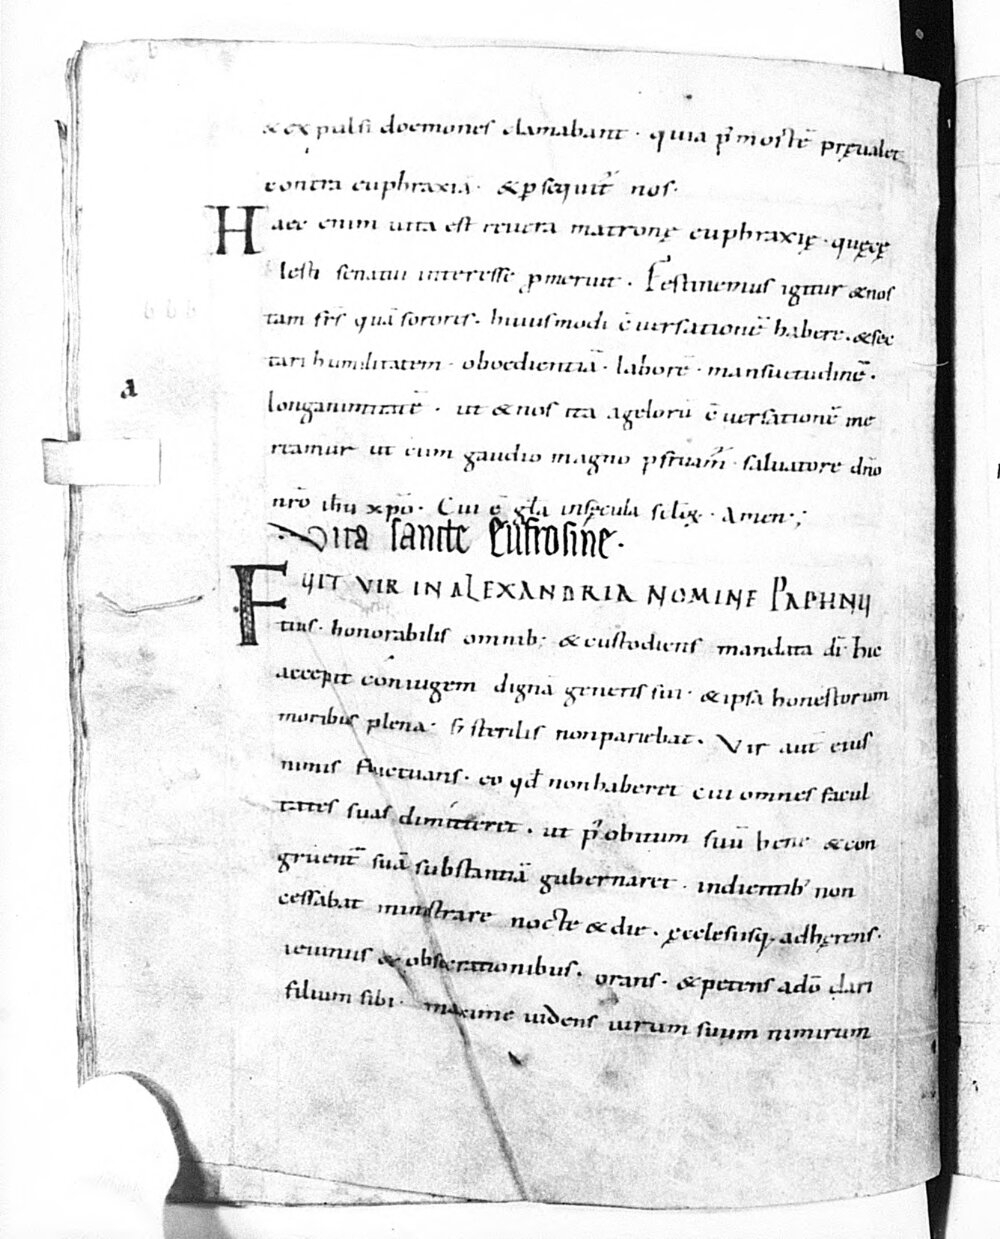 & expulsi doemones clamabant · quia p̄ mortē pręualet
contra euphraxiā · & ꝑsequit̄ nos ·
Haec enim uita est reuera matronę euphraxię · quęcę
lesti senatui interesse ꝓmeruit · Festinemus igitur & nos
tam fr̄s quā sorores · huiusmodi c̄uersationē habere · & sec
tari humilitatem · oboedientiā · laborē · mansuetudinē ·
longanimitatē · ut & nos ita ageloru c̄uersationē me
reamur ut cum gaudio magno saluatore dn̄o
nr̄o ihu xp̄o · Cui ē gl̄a insęcula scl̄oꝝ · Amen ;
Vita sancte Eufrosine ·
FUIT VIR IN ALEXANDRIA NOMINE PAPHNU
tius · honorabilis omnib; & custodiens mandata dī hic
accepit coniugem dignā generis sui · & ipsa honestorum
moribus plena · s; sterilis non pariebat · Vir aut̄ eius
nimis fluctuans · eo qd̄ non haberet cui omnes facul
tates suas dimitteret · ut p̄ obitum suū bene & con
gruent̄ suā substantiā gubernaret · indientib; non
cessabat ministrare nocte & die · ęcclesiisq; adhęrens ·
ieiuniis & obsecrationibus · orans · & petens ad dō dari
filium sibi · maxime uidens uirum suum nimirum
a